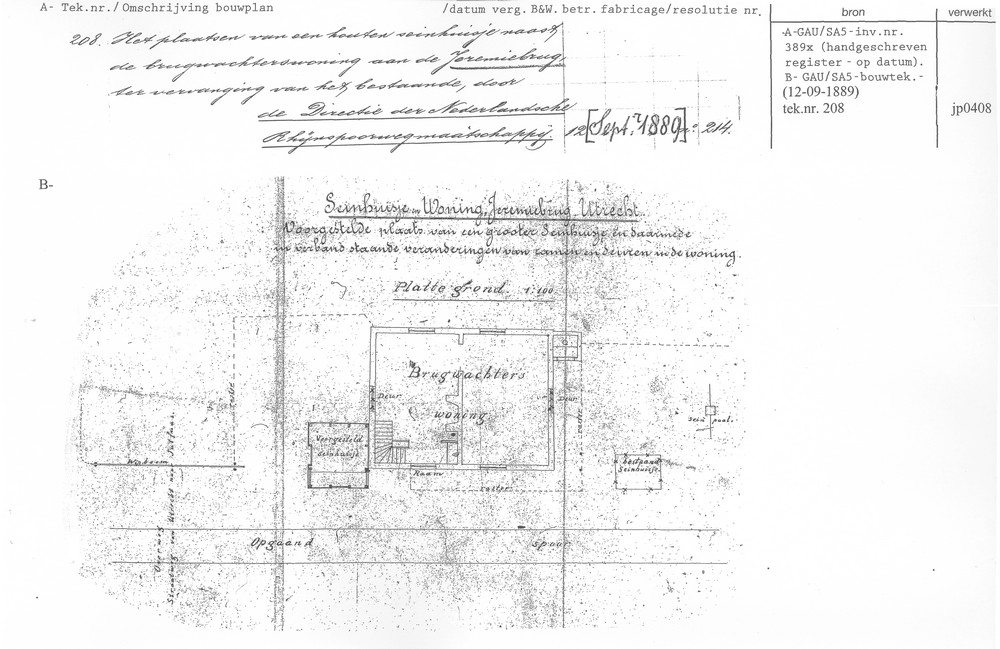 A- Tek.nr./Omschrijving bouwplan /datum verg. B&W. betr. fabricage/resolutie nr.
bron
verwerkt
208. Het plaatsen van een houten seinhuisje naast
de brugwachterswoning aan de Jeremiebrug,
ter vervanging van het bestaande, door
de Directie der Nederlandsche
Rhijnspoorwegmaatschappij. 12 [Sept. 1889] no. 214.
-A-GAU/SA5-inv.nr.
389x (handgeschreven
register - op datum).
B- GAU/SA5-bouwtek.-
(12-09-1889)
tek.nr. 208
jp0408
B-
Seinhuisje en Woning, Jeremiebrug Utrecht.
Voorgestelde plaats van een grooter Seinhuisje en daarmede
in verband staande veranderingen van ramen en deuren in de woning.
Platte grond. 1:100
Brugwachters
woning
Deur
Deur
raster
raster
Voorgesteld
Seinhuisje
Raam
raster
sein paal.
bestaand
Seinhuisje
Wegboom
Overweg
Straatweg van Utrecht naar Jutfaas.
Opgaand spoor